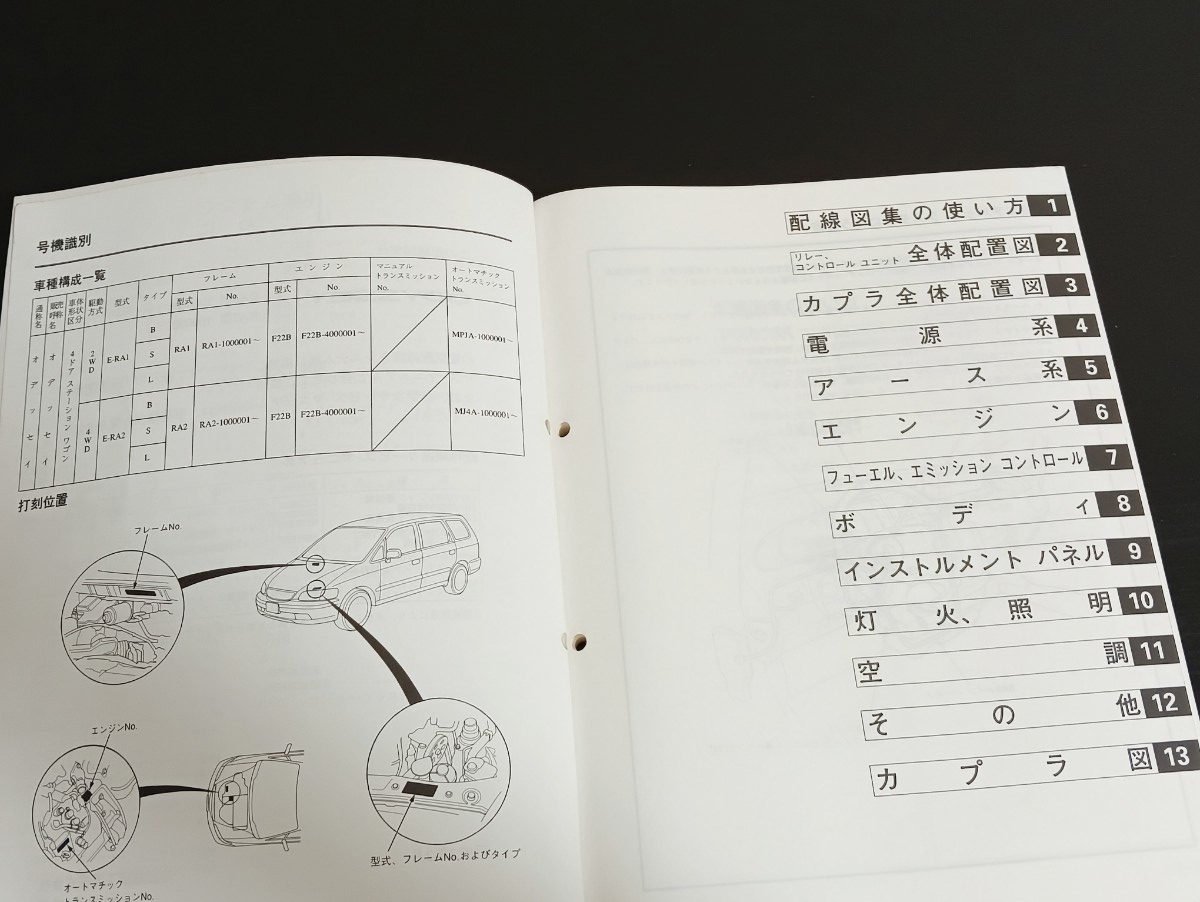 号機識別
車種構成一覧
通称名 販売呼称名 車体形状区分 駆動方式 型式 タイプ フレーム エンジン マニュアルトランスミッション No. オートマチックトランスミッション No.
型式 No. 型式 No.
オデッセイ オデッセイ 4ドア ステーション ワゴン 2WD E-RA1 B RA1 RA1-1000001～ F22B F22B-4000001～ MPJA-1000001～
S
L
4WD E-RA2 B RA2 RA2-1000001～ F22B F22B-4000001～ MJ4A-1000001～
S
L
打刻位置
フレームNo.
エンジンNo.
型式、フレームNo.およびタイプ
オートマチック
トランスミッションNo.
配線図集の使い方 1
リレー、
コントロール ユニット 全体配置図 2
カプラ全体配置図 3
電源系 4
アース系 5
エンジン 6
フューエル、エミッション コントロール 7
ボディ 8
インストルメント パネル 9
灯火、照明 10
空調 11
その他 12
カプラ図 13